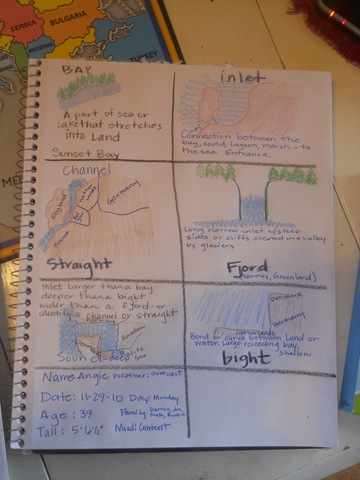 SERBIA
BULGARIA
TURKEY
BAY
A part of sea or
lake that stretches
into Land
Sunset Bay
inlet
Connection between the
bay, sound, lagoon, marsh - to
the sea. Entrance.
Channel
England
Germany
France
Straight
Long narrow inlet w/steep
sides or cliffs created in a valley
by glaciers
Fjord
(Norway, Greenland)
Inlet larger than a bay
deeper than a bight
wider than a fjord - or
identifs a channel or straight
Sweden
Sound - deep
sea
denmark
Germany
netherlands
Bend or curve between land or
water. Large receeding bay
shallow
bight
Name Angie weather: Overcast
Date: 11-29-10 Day: Monday
Age: 39 Family:
Tall: 5' 6½" Mood: Content